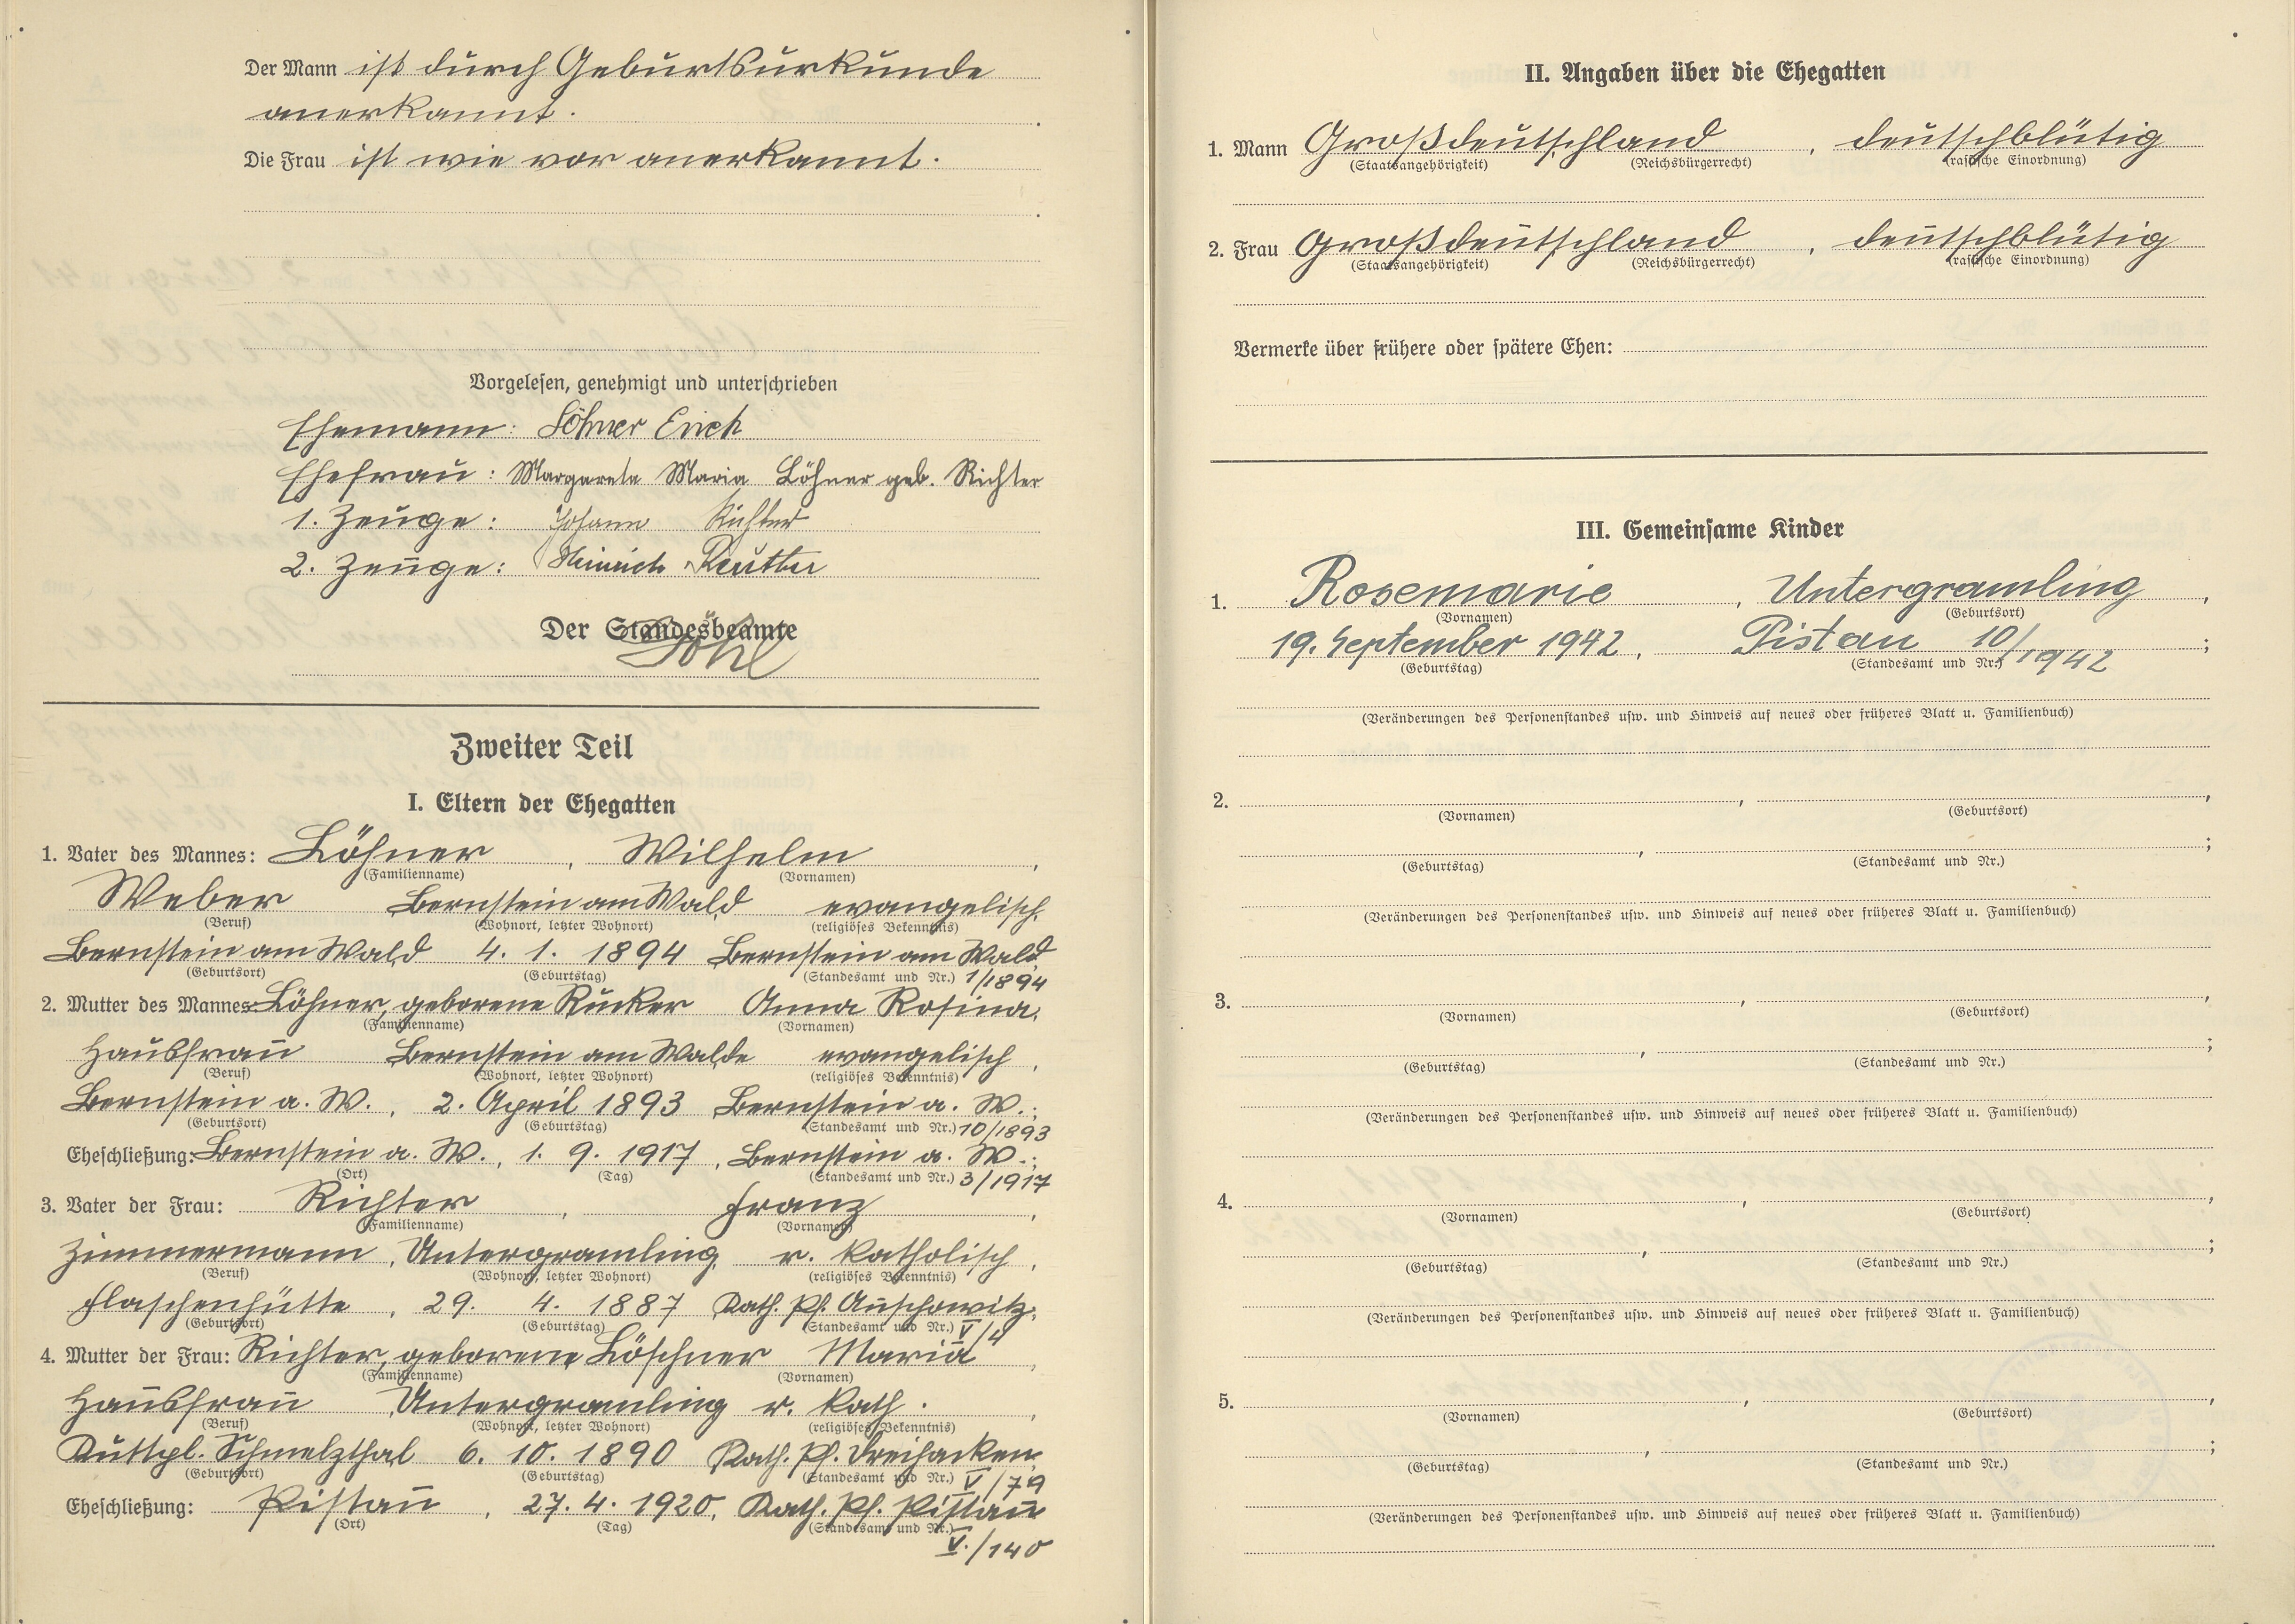 Der Mann ist durch Geburtsurkunde
anerkannt.
Die Frau ist wie vor anerkannt.
Vorgelesen, genehmigt und unterschrieben
Ehemann: Löhner Erich
Ehefrau: Margareta Maria Löhner geb. Richter
1. Zeuge: Johann Richter
2. Zeuge: Heinrich Reutter
Der Standesbeamte
Zweiter Teil
I. Eltern der Ehegatten
1. Vater des Mannes: Löhner, Wilhelm,
(Familienname) (Vornamen)
Weber Bernstein am Wald evangelisch,
(Beruf) (Wohnort, letzter Wohnort) (religiöses Bekenntnis)
Bernstein am Wald 4. 1. 1894 Bernstein am Wald
(Geburtsort) (Geburtstag) (Standesamt und Nr.) 1/1894
2. Mutter des Mannes: Löhner, geborene Rücker Anna Rosina,
(Familienname) (Vornamen)
Hausfrau Bernstein am Walde evangelisch,
(Beruf) (Wohnort, letzter Wohnort) (religiöses Bekenntnis)
Bernstein a. W., 2. April 1893 Bernstein a. W.;
(Geburtsort) (Geburtstag) (Standesamt und Nr.) 10/1893
Eheschließung: Bernstein a. W., 1. 9. 1917, Bernstein a. W.;
(Ort) (Tag) (Standesamt und Nr.) 3/1917
3. Vater der Frau: Richter, Franz,
(Familienname) (Vornamen)
Zimmermann, Untergramling, r. katholisch,
(Beruf) (Wohnort, letzter Wohnort) (religiöses Bekenntnis)
Flaschenhütte, 29. 4. 1887 Kath. Pf. Auschowitz,
(Geburtsort) (Geburtstag) (Standesamt und Nr.) V/4
4. Mutter der Frau: Richter, geborene Löschner Maria,
(Familienname) (Vornamen)
Hausfrau Untergramling r. kath.,
(Beruf) (Wohnort, letzter Wohnort) (religiöses Bekenntnis)
Schmelzthal 6. 10. 1890 Kath. Pf. Dreihacken,
(Geburtsort) (Geburtstag) (Standesamt und Nr.) V/79
Eheschließung: Pistau, 27. 4. 1920, Kath. Pf. Pistau
(Ort) (Tag) (Standesamt und Nr.)
V./140
II. Angaben über die Ehegatten
1. Mann Großdeutschland, deutschblütig
(Staatsangehörigkeit) (Reichsbürgerrecht) (rassische Einordnung)
2. Frau Großdeutschland, deutschblütig
(Staatsangehörigkeit) (Reichsbürgerrecht) (rassische Einordnung)
Vermerke über frühere oder spätere Ehen:
III. Gemeinsame Kinder
1. Rosemarie, Untergramling,
(Vornamen) (Geburtsort)
19. September 1942, Pistau 10/1942;
(Geburtstag) (Standesamt und Nr.)
(Veränderungen des Personenstandes usw. und Hinweis auf neues oder früheres Blatt u. Familienbuch)
2. , ,
(Vornamen) (Geburtsort)
, ;
(Geburtstag) (Standesamt und Nr.)
(Veränderungen des Personenstandes usw. und Hinweis auf neues oder früheres Blatt u. Familienbuch)
3. , ,
(Vornamen) (Geburtsort)
, ;
(Geburtstag) (Standesamt und Nr.)
(Veränderungen des Personenstandes usw. und Hinweis auf neues oder früheres Blatt u. Familienbuch)
4. , ,
(Vornamen) (Geburtsort)
, ;
(Geburtstag) (Standesamt und Nr.)
(Veränderungen des Personenstandes usw. und Hinweis auf neues oder früheres Blatt u. Familienbuch)
5. , ,
(Vornamen) (Geburtsort)
, ;
(Geburtstag) (Standesamt und Nr.)
(Veränderungen des Personenstandes usw. und Hinweis auf neues oder früheres Blatt u. Familienbuch)